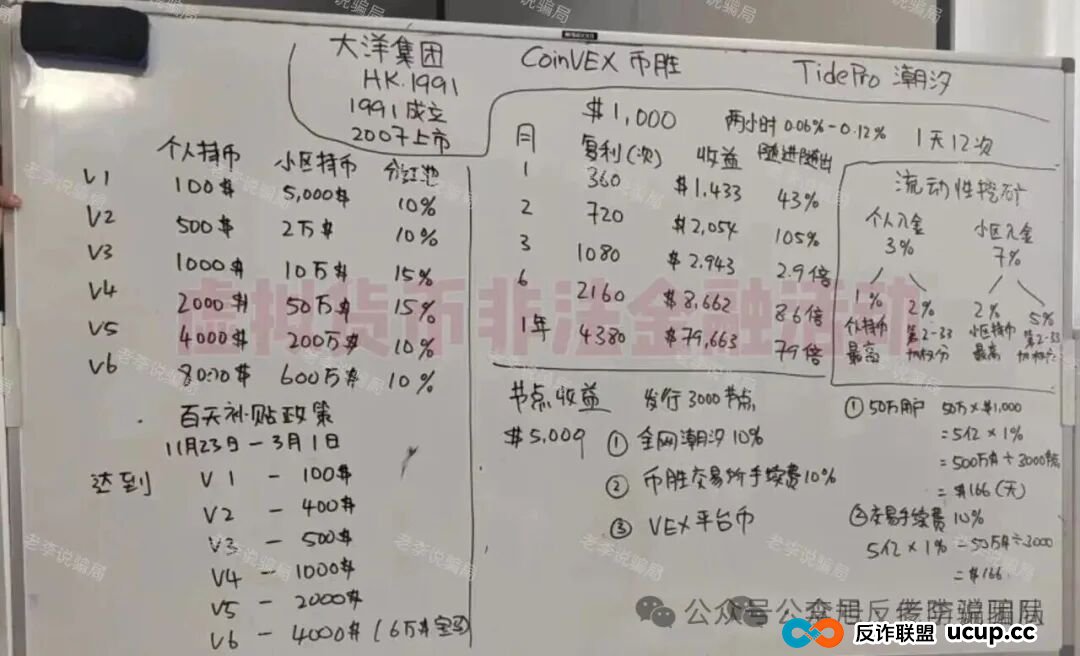 大洋集团
HK.1991
1991成立
2007上市
CoinVEX 币胜
TidePro 潮汐
个人持币 小区持币 分红池
V1 100$ 5,000$ 10%
V2 500$ 2万$ 10%
V3 1000$ 10万$ 15%
V4 2000$ 50万$ 15%
V5 4000$ 200万$ 10%
V6 8000$ 600万$ 10%
百天补贴政策
11月23日-3月1日
达到 V1 - 100$
V2 - 400$
V3 - 500$
V4 - 1000$
V5 - 2000$
V6 - 4000$ (6万$宝马)
$1,000 两小时 0.06%-0.12% 1天12次
月 复利(次) 收益 随进随出
1 360 $1.433 43%
2 720 $2,054 105%
3 1080 $2.943 2.9倍
6 2160 $8,662 8.6倍
1年 4380 $79,663 79倍
流动性挖矿
个人入金 小区入金
3% 7%
1% 2% 2% 5%
个持币 第2-33 小区持币 第2-33
最高 最高
节点收益 发行3000节点
$5,009 ① 全网潮汐10%
② 币胜交易所手续费10%
③ VEX平台币
① 50万用户 50万×$1,000
=5亿×1%
=500万$÷3000
=$166(天)
②交易手续费10%
5亿×1%-50万$÷3000
=$166
虚拟货币非法金融活动
老李说骗局
老李说骗局
老李说骗局
老李说骗局
老李说骗局
老李说骗局
公众号
反诈联盟 ucup.cc